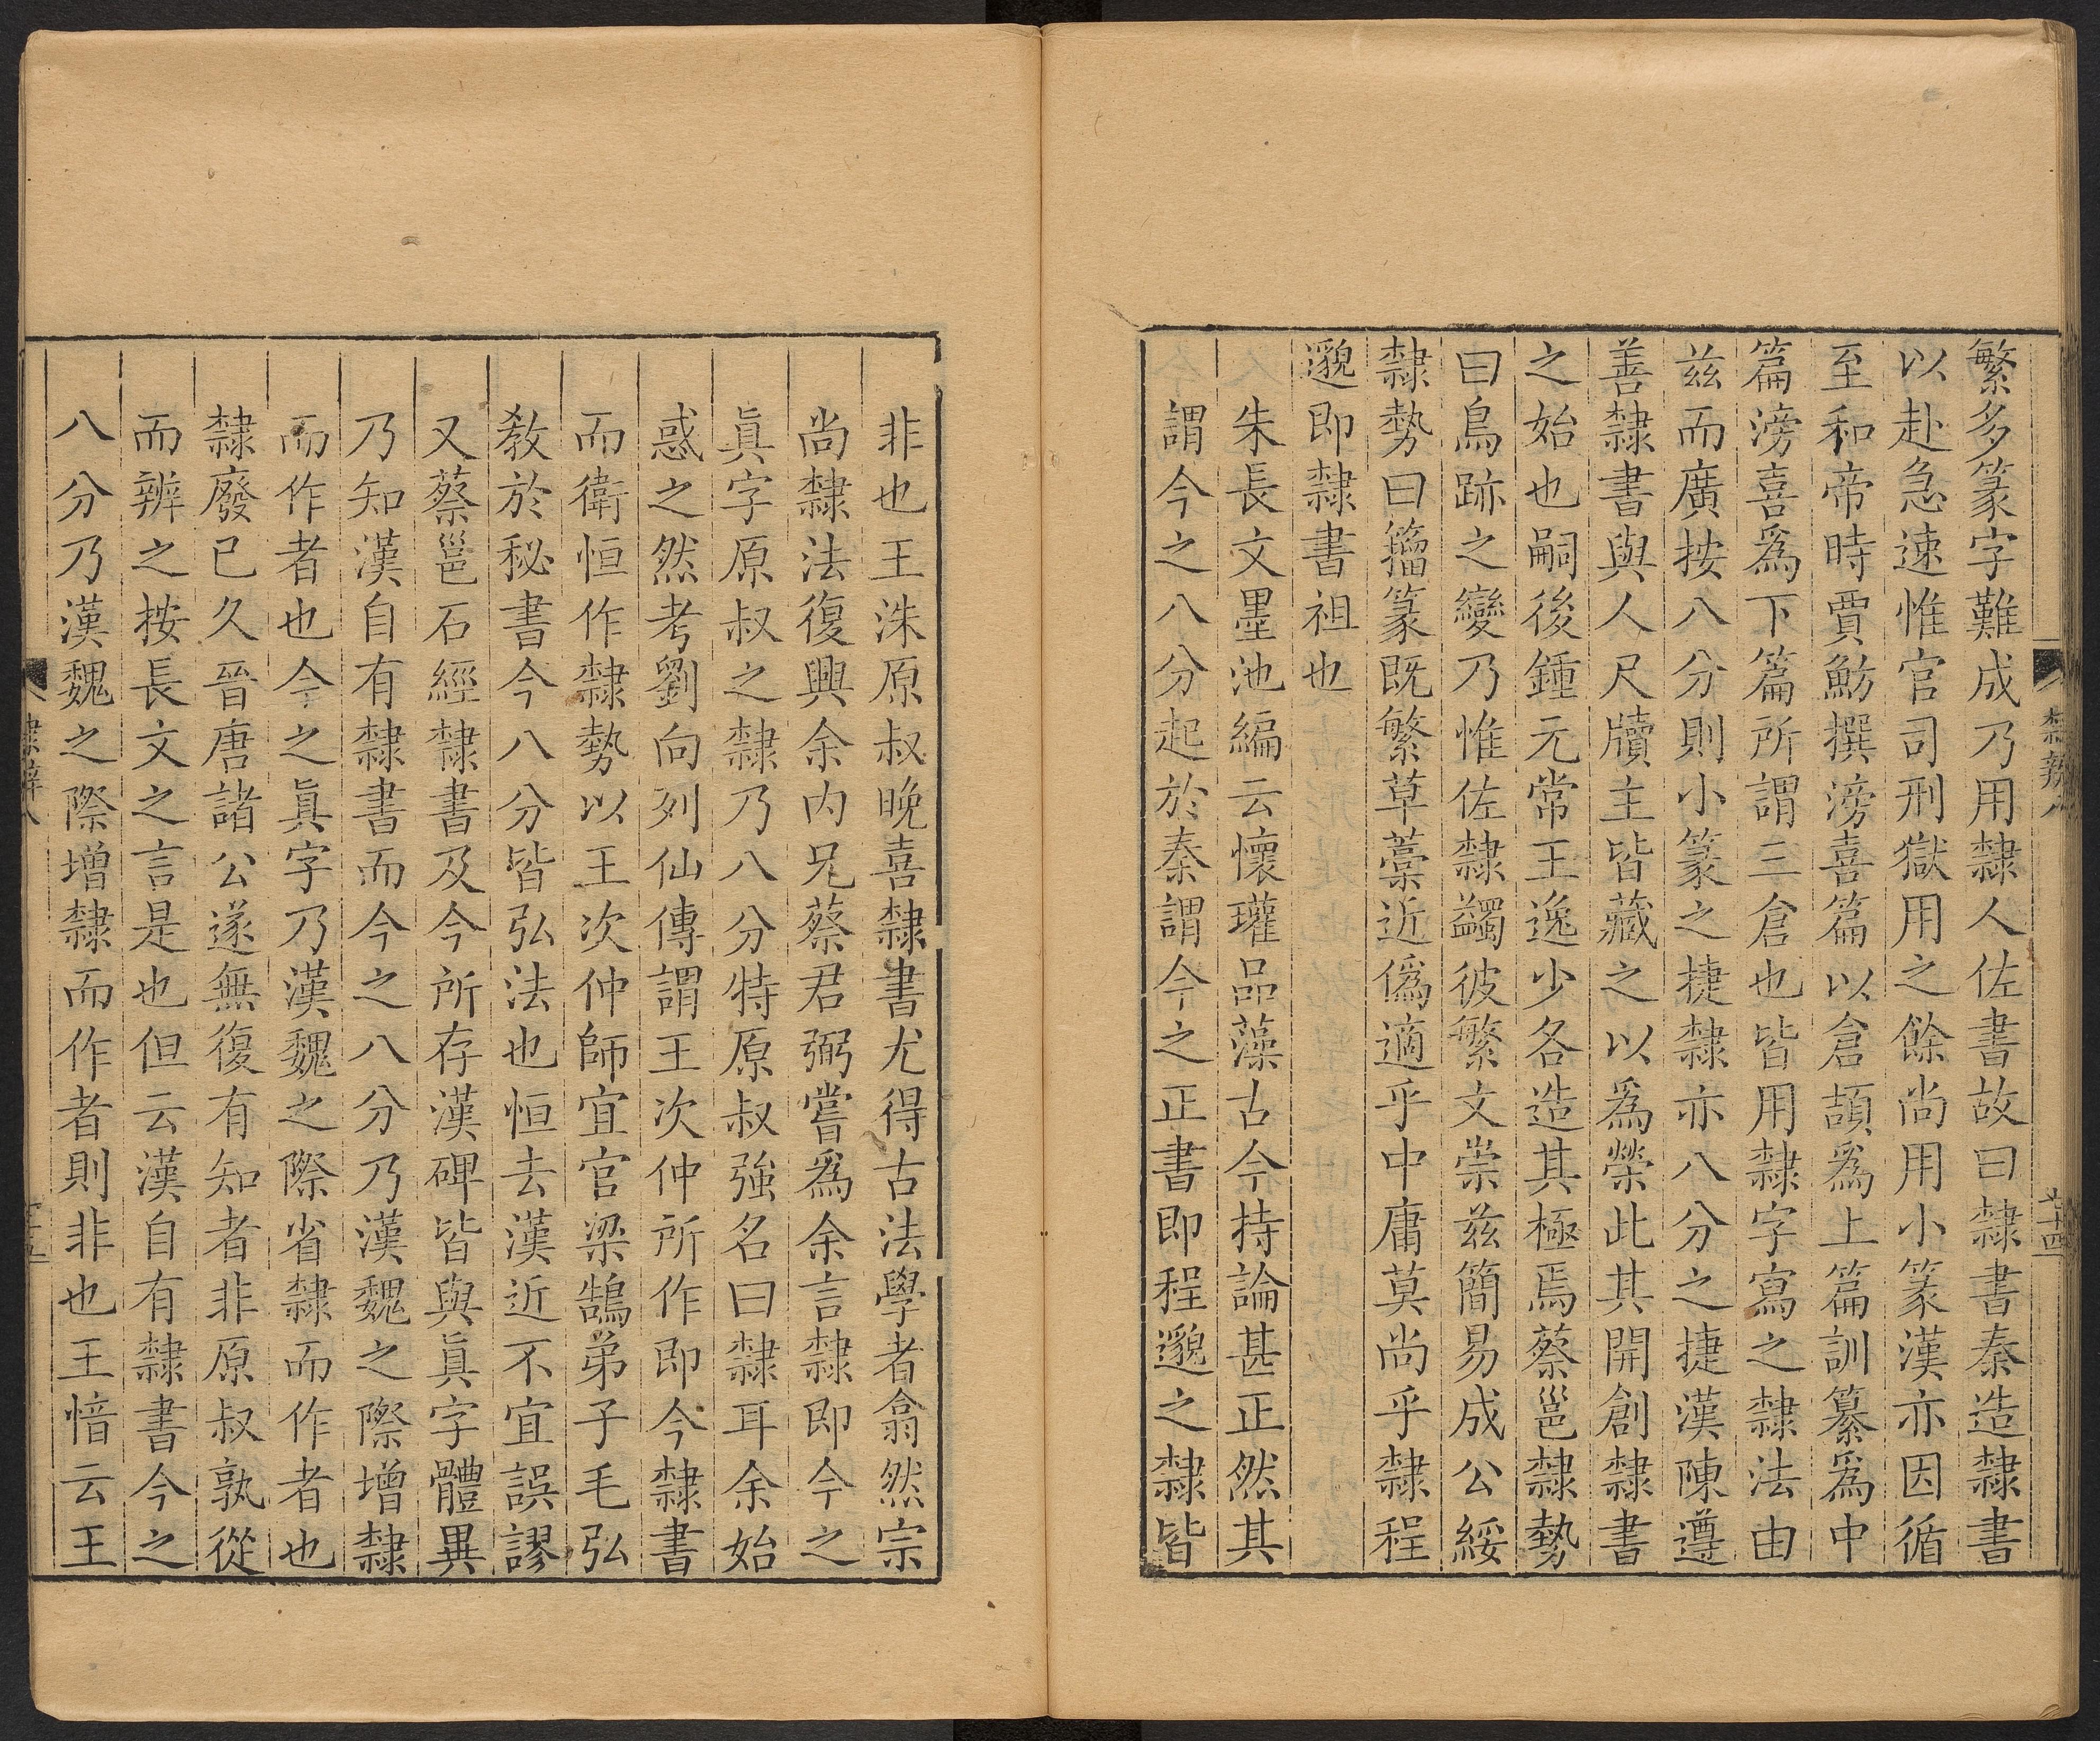 隸辨八
七十四
繁多篆字難成乃用隸人佐書故曰隸書秦造隸書
以赴急速惟官司刑獄用之餘尚用小篆漢亦因循
至和帝時賈魴撰滂喜篇以倉頡爲上篇訓纂爲中
篇滂喜爲下篇所謂三倉也皆用隸字寫之隸法由
兹而廣按八分則小篆之捷隸亦八分之捷漢陳遵
善隸書與人尺牘主皆藏之以爲榮此其開創隸書
之始也嗣後鍾元常王逸少各造其極焉蔡邕隸勢
曰鳥跡之變乃惟佐隸蠲彼繁文崇兹簡易成公綏
隸勢曰籀篆既繁草藁近僞適乎中庸莫尚乎隸程
邈即隸書祖也
朱長文墨池編云懷瓘品藻古今持論甚正然其
謂今之八分起於秦謂今之正書即程邈之隸皆
非也王洙原叔晚喜隸書尤得古法學者翕然宗
尚隸法復興余内兄蔡君弼嘗爲余言隸即今之
眞字原叔之隸乃八分特原叔強名曰隸耳余始
惑之然考劉向列仙傳謂王次仲所作即今隸書
而衛恒作隸勢以王次仲師宜官梁鵠弟子毛弘
敎於秘書今八分皆弘法也恒去漢近不宜誤謬
又蔡邕石經隸書及今所存漢碑皆與眞字體異
乃知漢自有隸書而今之八分乃漢魏之際增隸
而作者也今之眞字乃漢魏之際省隸而作者也
隸廢已久晉唐諸公遂無復有知者非原叔孰從
而辨之按長文之言是也但云漢自有隸書今之
八分乃漢魏之際增隸而作者則非也王愔云王
隸辨八